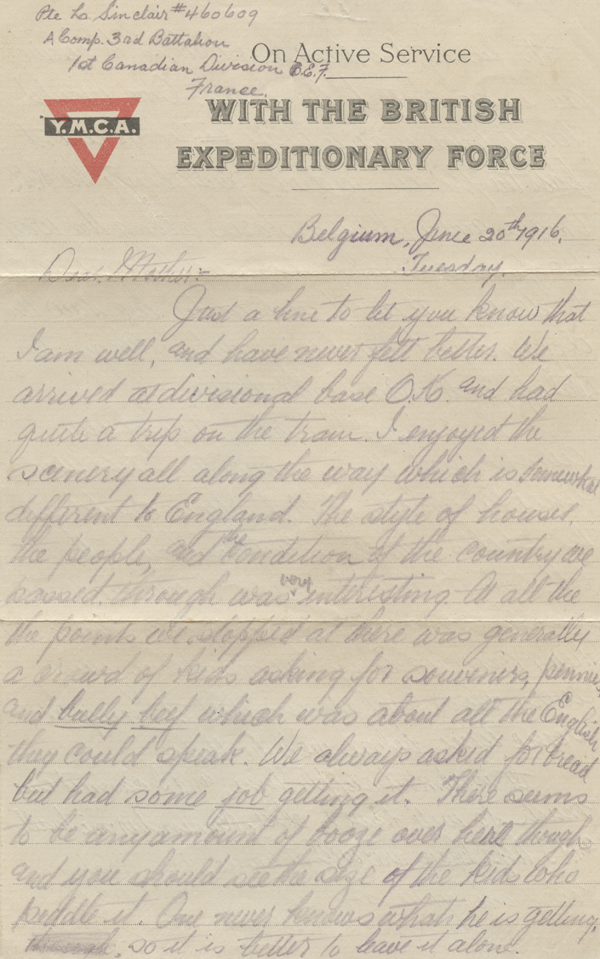 Pte L. Sinclair #460609
A Comp. 3rd Battalion
1st Canadian Division B.E.F.
France.
On Active Service
WITH THE BRITISH
EXPEDITIONARY FORCE
Y.M.C.A.
Belgium, June 20th 1916.
Tuesday.
Dear Mother:-
Just a line to let you know that
I am well, and have never felt better. We
arrived at divisional base O.K. and had
quite a trip on the train. I enjoyed the
scenery all along the way which is somewhat
different to England. The style of houses,
the people, and the condition of the country we
passed through was very interesting. At all the
the points we stopped at there was generally
a crowd of kids asking for souvenirs, pennies,
and bully beef which was about all the English
they could speak. We always asked for bread
but had some job getting it. There seems
to be any amount of booze over here though
and you should see the size of the kids who
peddle it. One never knows what he is getting,
so it is better to leave it alone.